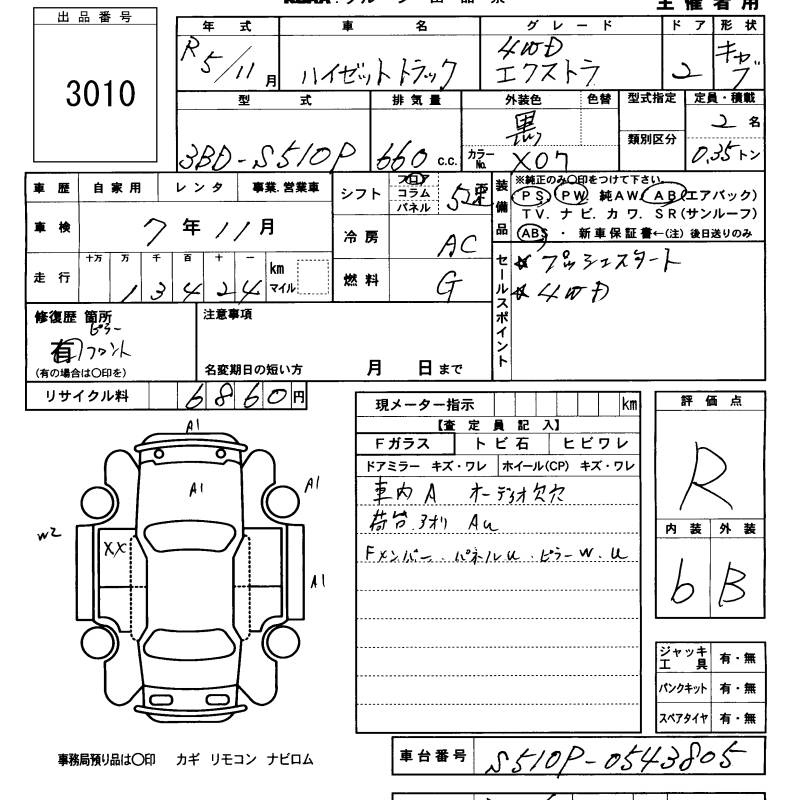 主催者用
出品番号
3010
年式 車名 グレード ドア 形状
R5/11月 ハイゼットトラック 4WD エクストラ 2 キャブ
型式 排気量 外装色 色替 型式指定 定員・積載
3BD-S510P 660 c.c. 黒 カラーNo. X07 類別区分 2名 0.35トン
車歴 自家用 レンタ 事業.営業車
車検 7年11月
走行 十万 万 千 百 十 一 km マイル
13424
シフト フロア コラム パネル 5速
冷房 AC
燃料 G
装備品 ※純正のみ〇印をつけて下さい。
PS. PW. 純AW. AB(エアバック)
TV. ナビ. カワ. SR(サンルーフ)
ABS ・ 新車保証書←(注) 後日送りのみ
セールスポイント
☆ プッシュスタート
☆ 4WD
修復歴 箇所
ピラー
有 フロント
(有の場合は〇印を)
注意事項
名変期日の短い方 月 日まで
リサイクル料 6860円
現メーター指示 km
【査定員記入】
Fガラス トビ石 ヒビワレ
ドアミラー キズ・ワレ ホイール(CP) キズ・ワレ
車内A オーディオ欠品
荷台.アオリ AU
Fメンバー.パネルU.ピラーW.U
評価点
R
内装 外装
6 B
A1
A1
A1
W2
XX
A1
ジャッキ工具 有・無
パンクキット 有・無
スペアタイヤ 有・無
事務局預り品は〇印 カギ リモコン ナビロム
車台番号 S510P-0543805